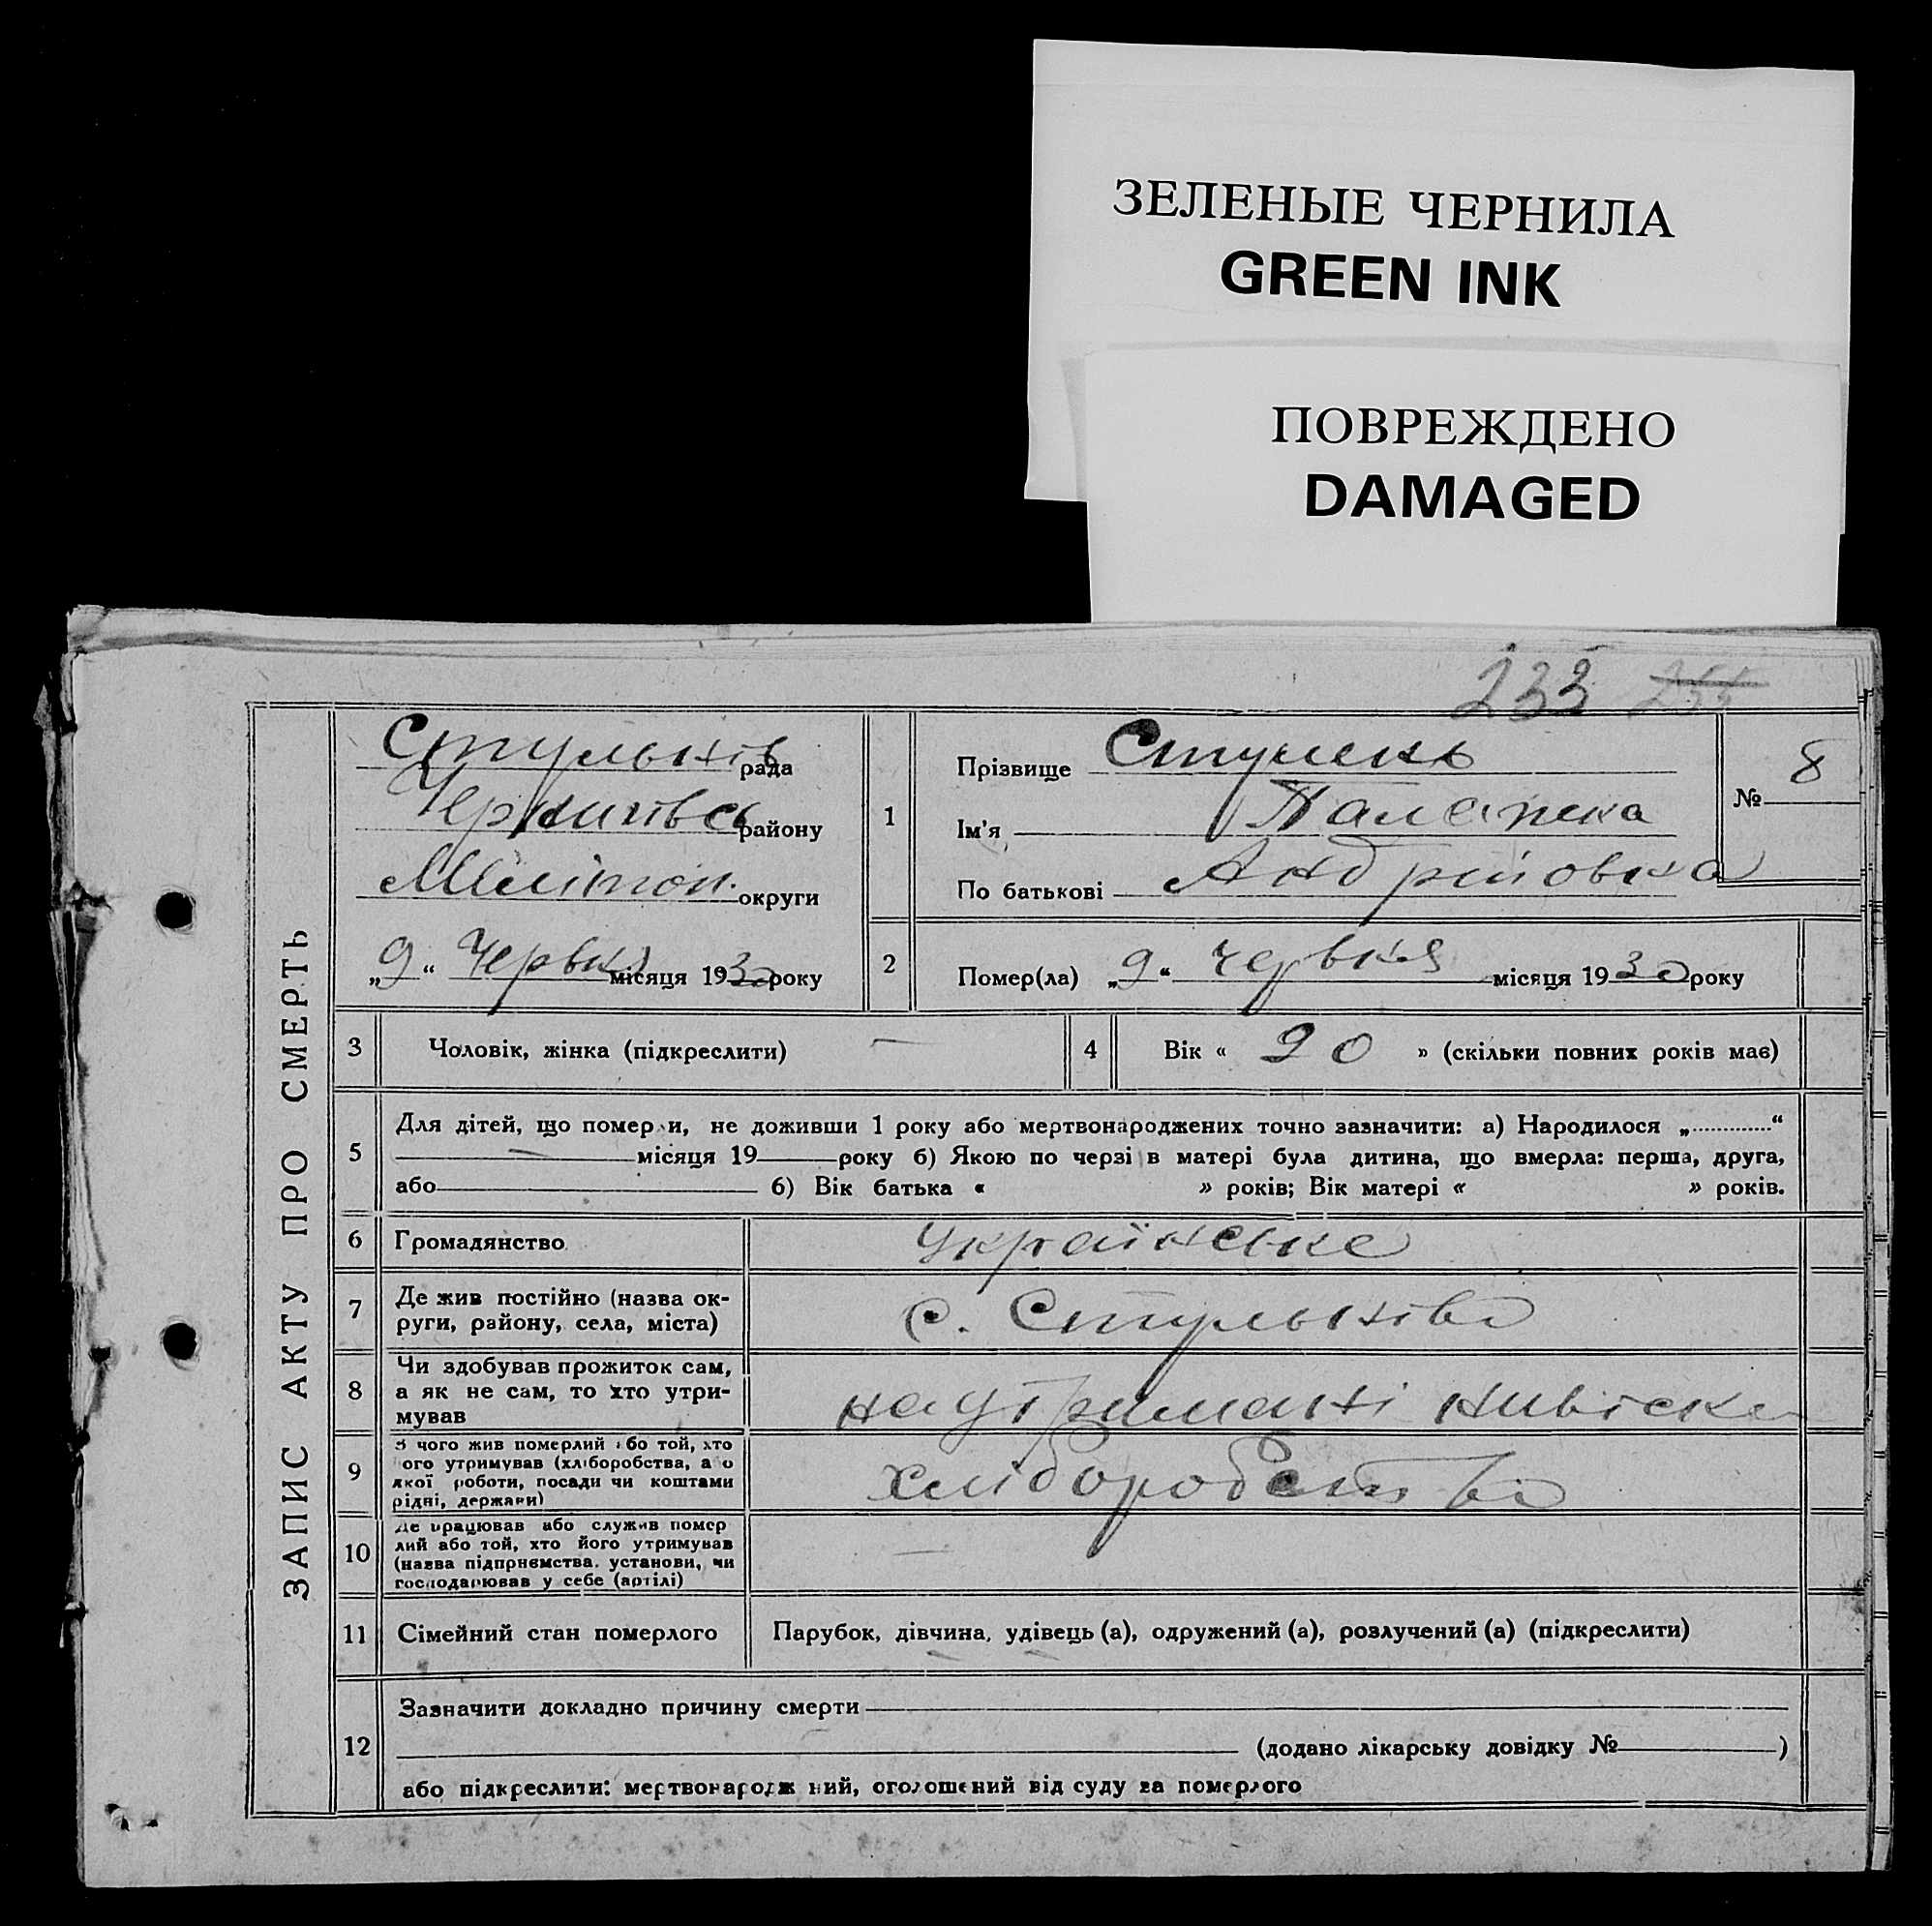 ЗЕЛЕНЫЕ ЧЕРНИЛА
GREEN INK
ПОВРЕЖДЕНО
DAMAGED
233 255
ЗАПИС АКТУ ПРО СМЕРТЬ
Стульнів рада
район
Меліт округи
„9“ Червня місяця 1930 року
1
Прізвище
Ім'я
По батькові Андрійовна
№ 8
2
Помер(ла) „9“ червня місяця 1930 року
3 Чоловік, жінка (підкреслити)
4 Вік « 90 » (скільки повних років має)
5
Для дітей, що померли, не доживши 1 року або мертвонароджених точно зазначити: а) Народилося „ “
місяця 19 року б) Якою по черзі в матері була дитина, що вмерла: перша, друга,
або б) Вік батька « » років; Вік матері « » років.
6 Громадянство Українське
7
Де жив постійно (назва ок-
руги, району, села, міста)
с. Стульніво
8
Чи здобував прожиток сам,
а як не сам, то хто утри-
мував
на утриманні
9
З чого жив померлий або той, хто
ого утримував (хліборобства, або
якої роботи, посади чи коштами
рідні, держави)
хліборобства
10
Де працював або служив помер
лий або той, хто його утримував
(назва підприємства, установи, чи
господарював у себе (артілі)
11 Сімейний стан померлого Парубок, дівчина, удівець (а), одружений (а), розлучений (а) (підкреслити)
12
Зазначити докладно причину смерти
(додано лікарську довідку № )
або підкреслити: мертвонародж ний, оголошений від суду за померлого